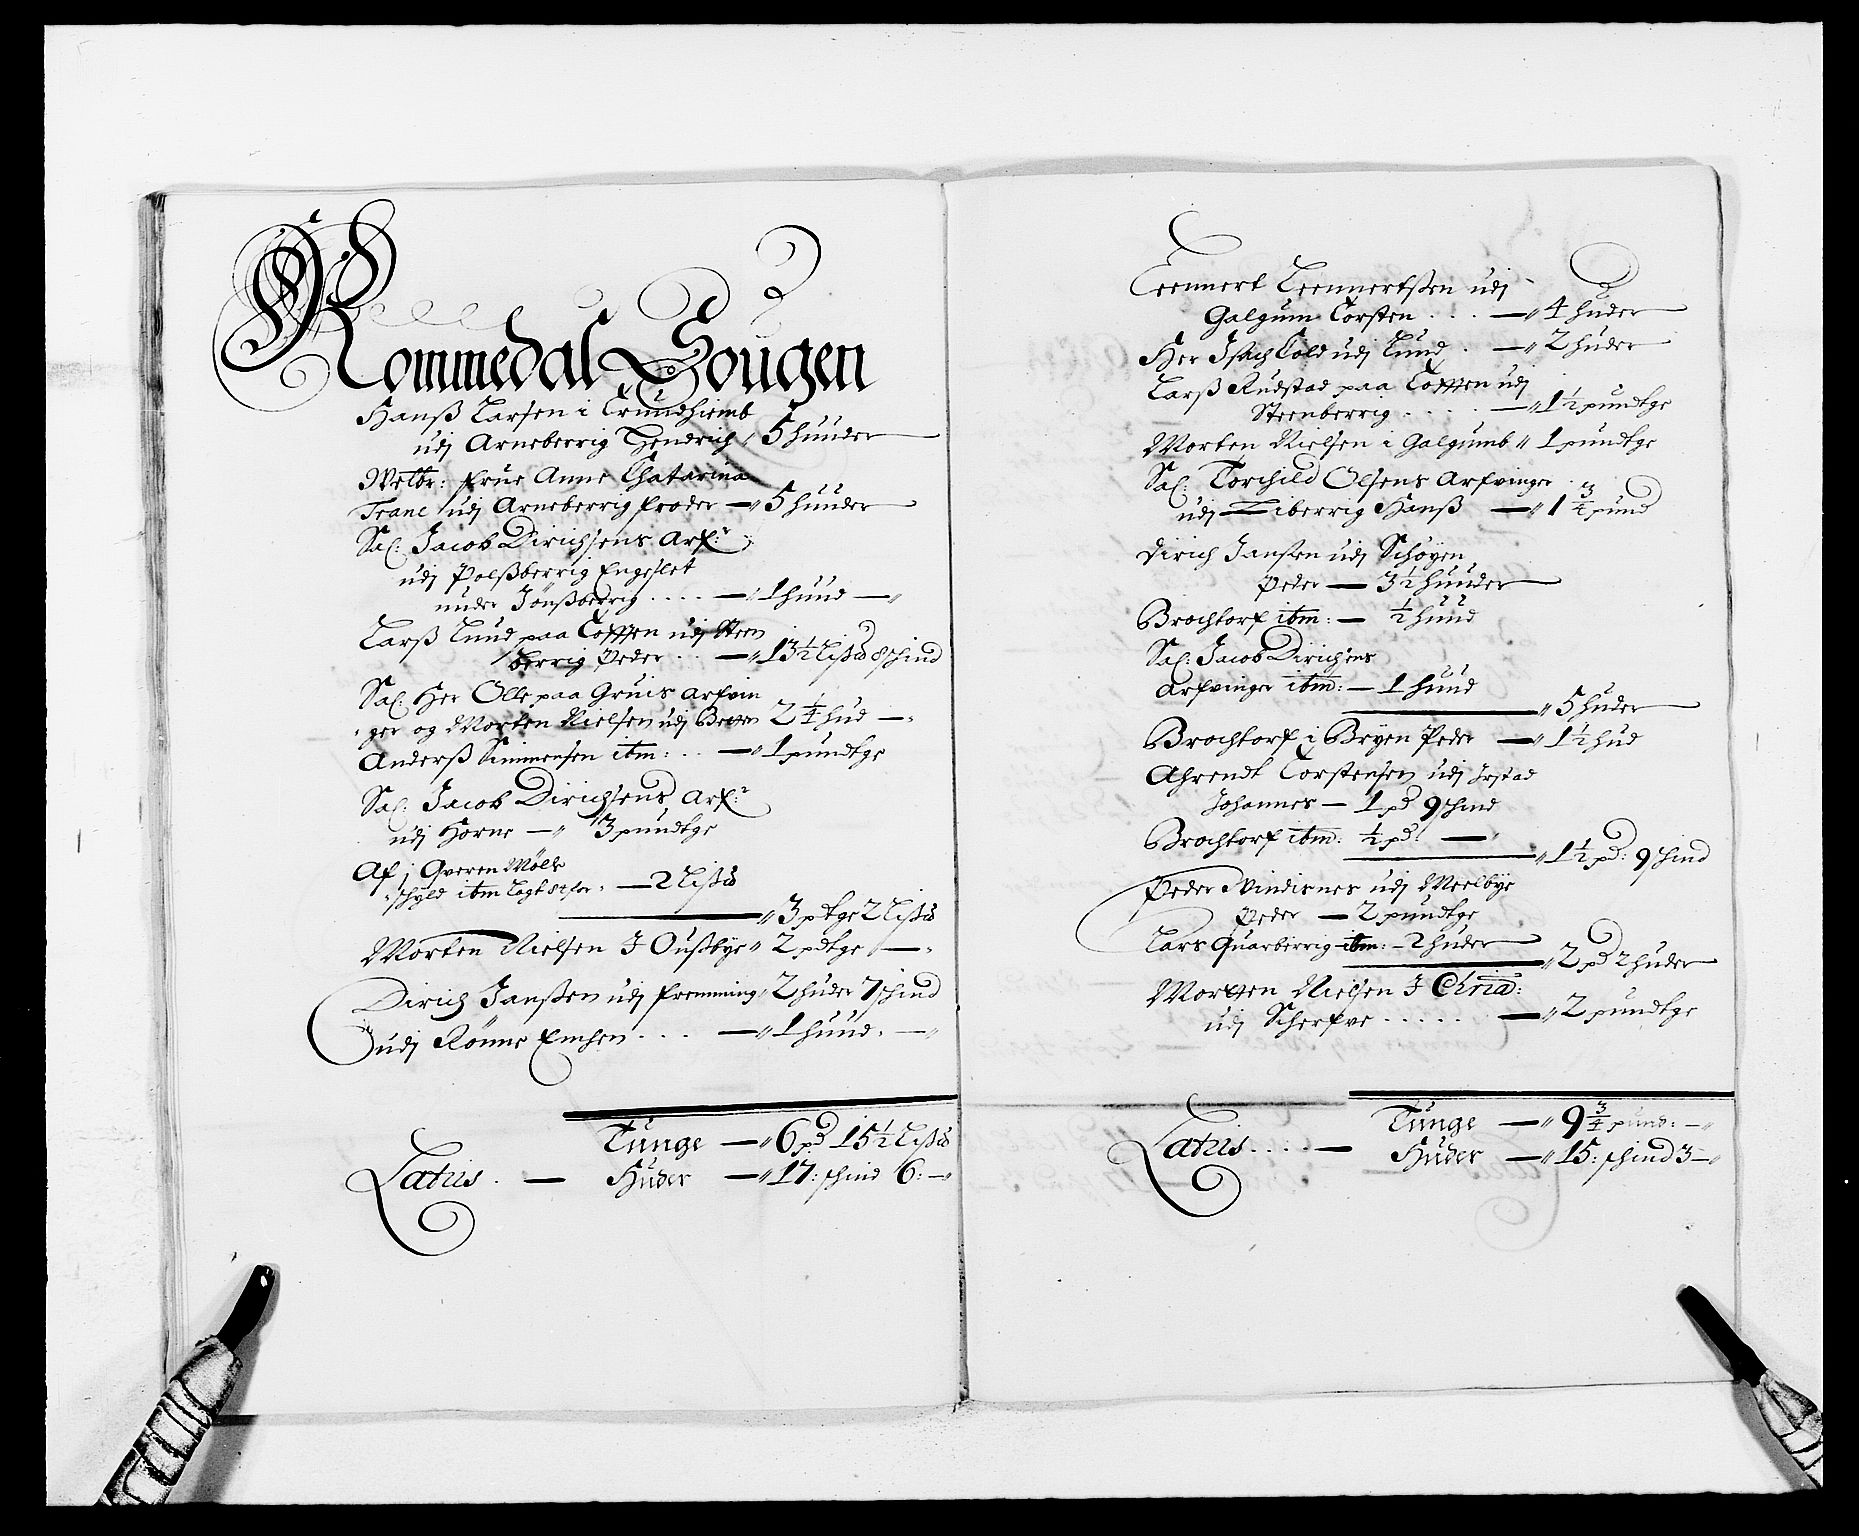 Rommedal Sougen
Hanß Larsen i Trundhiemb
udj Arneberrig Hendrich " 5 huuder
Welbr: frue Anne Chatarina
Franc udj Arneberrig froder — " 5 huuder
Sal: Jacob Dirichsens Arf:r
udj Polßberrig Engeslet
under Jönßberrig .... — " 1 huud — "
Larß Lund paa Tofften udj Steen
berrig Peder .. — " 13½ Lispd 8 schind
Sal: Her Olle paa Gruis arfvin
ger og Morten Nielsen udj 2¼ hud — "
Anderß Simmensen itm: .. — " 1 pundtge
Sal: Jacob Dirichsens Arf:r
udj Horne — " 3 pundtge
Af j Qveren Mölle
schyld itm Lagt — 2 Lispd
" 3 pdtge 2 Lispd
Morten Nielsen J Oußbye " 2 pdtge — "
Dirich Janßen udj fremming " 2 huder 7 schind
udj Rönne Emhen ... — " 1 huud. — "
Tunge — " 6 pd 15½ Lispd
Latus. — Huder — " 17: schind 6: — "
Leennert Leennertßen udj
Galgum Torsten .... — " 4 huder
Her Isach Cold udj Lund . — " 2 huder
Larß Rudstad paa Tofften udj
Steenberrig .... — " 1½ pundtge
Morten Nielsen i Galgumb " 1 pundtge
Sal: Torchild Olsens Arfvinger
udj Liberrig Hanß — " 1¾ pund
Dirich Janßen udj Schöyen
Peder — 3½ huuder
Brochtorf itm: — ½ huud
Sal: Jacob Dirichsens
Arfvinger itm: — 1 huud
" 5 huder
Brochtorf i Bryen Peder — " 1½ hud
Ahrendt Torstensen udj Irstad
Johannes — 1 pd 9 schind
Brochtorf itm: ½ pd: — "
" 1½ pd: 9 schind
Peder Vindisnes udj Meelbye
Peder — 2 pundtge
Lars Quarberrig itm: — 2 huder
" 2 pd 2 huder
Morten Nielsen J Chria:
udj Scherfve ...... — " 2 pundtge
Tunge — " 9¾ pund: — "
Latus.... — Huder — " 15: schind 3 — "